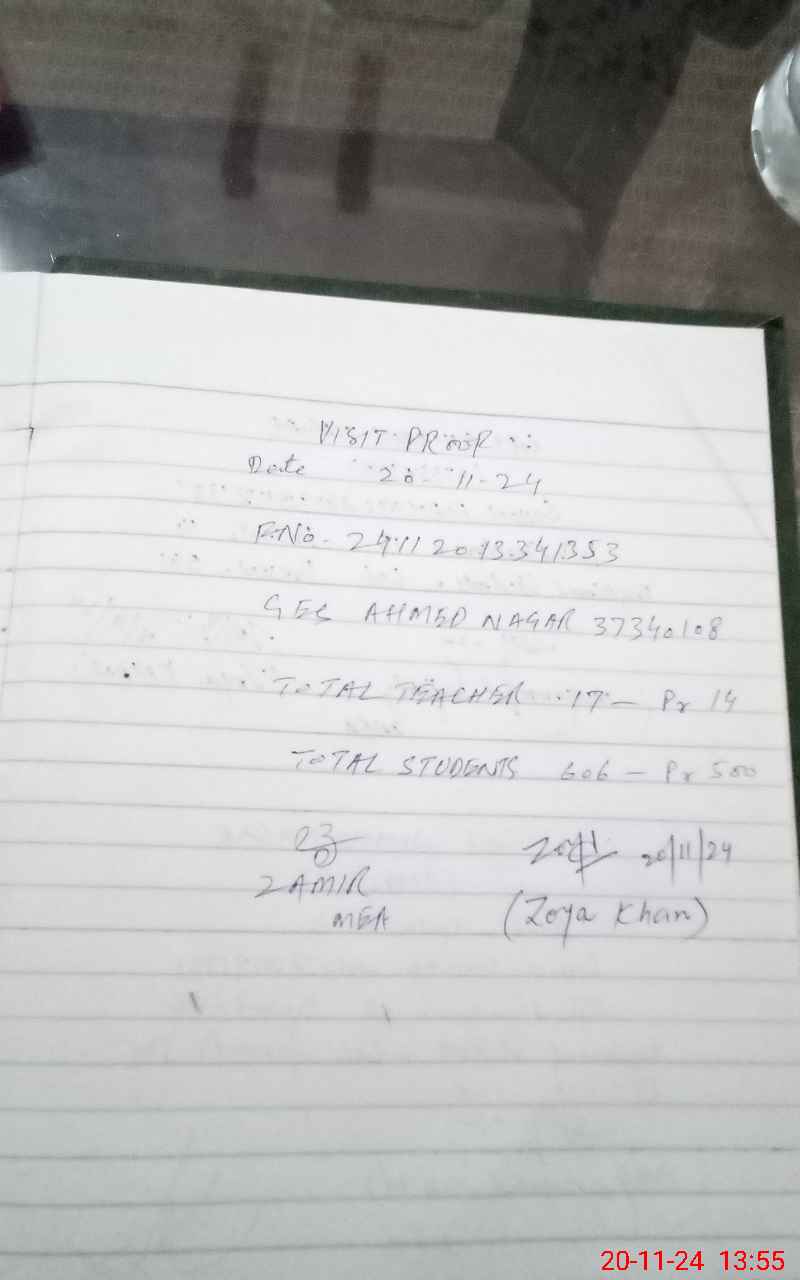 VISIT PROOF :
Date 20-11-24
F.No. 241120133341353
GES AHMED NAGAR 37340108
TOTAL TEACHER 17 - Pr 14
TOTAL STUDENTS 606 - Pr 500
20/11/24
ZAMIR
MEA
(Zoya Khan)
20-11-24 13:55